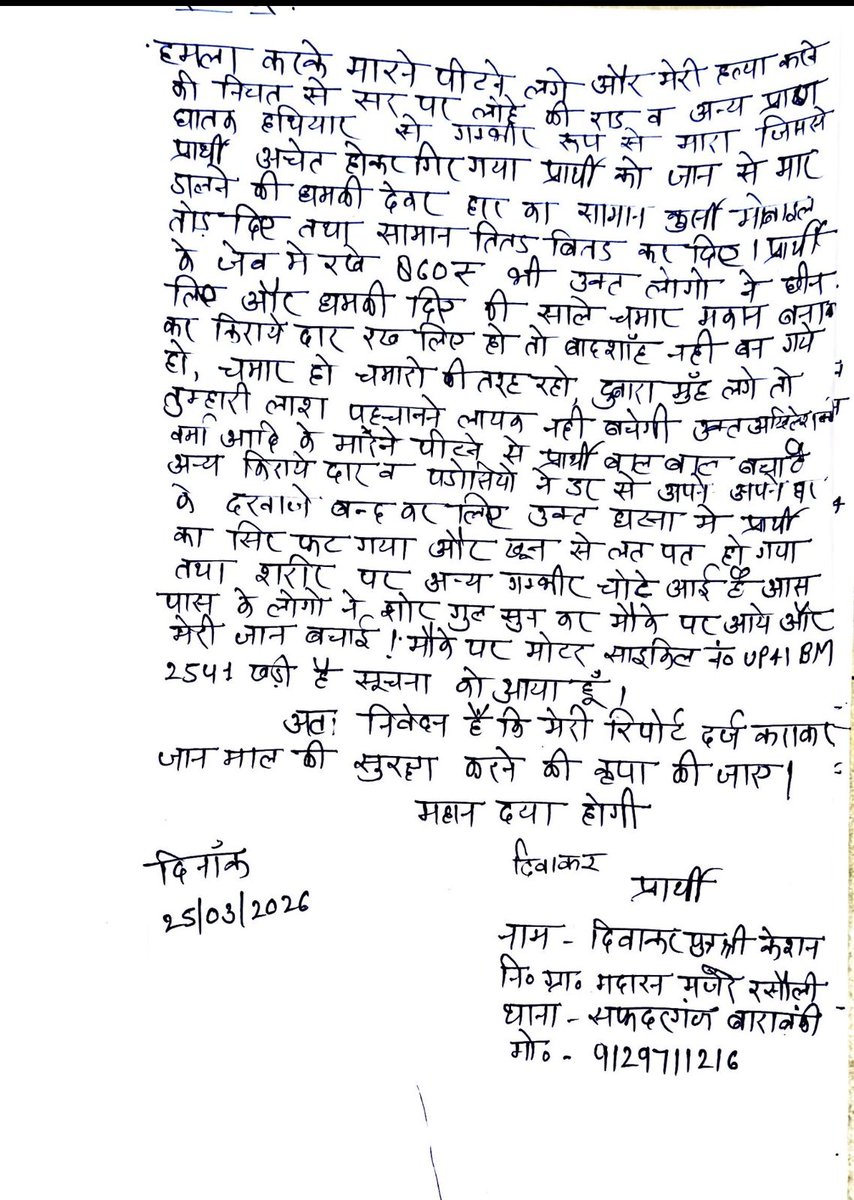 हमला करके मारने पीटने लगे और मेरी हत्या करने
की नियत से सर पर लोहे की राड व अन्य प्राण
घातक हथियार से गम्भीर रूप से मारा जिससे
प्रार्थी अचेत होकर गिर गया प्रार्थी को जान से मार
डालने की धमकी देकर का सामान कुर्सी मोबाइल
तोड़ दिए तथा सामान तितड बितड कर दिए। प्रार्थी
के जेब मे रखे 860रु भी उक्त लोगो ने छीन
लिए और धमकी दिए की साले चमार मकान बनवा
कर किराये दार रख लिए हो तो बादशाँह नही बन गये
हो, चमार हो चमारो की तरह रहो, दुबारा मुँह लगे तो
तुम्हारी लाश पहचानने लायक नही बचेगी उक्त
वर्मा आदि के मारने पीटने से प्रार्थी बाल बाल बचा है
अन्य किराये दार व पडोसियो ने डर से अपने अपने घर
के दरवाजे बन्द कर लिए उक्त घटना मे प्रार्थी
का सिर फट गया और खून से लत पत हो गया
तथा शरीर पर अन्य गम्भीर चोटे आई है आस
पास के लोगो ने शोर गुल सुन कर मौके पर आये और
मेरी जान बचाई। मौके पर मोटर साइकिल नं० UP41 BM
2541 खड़ी है सूचना को आया हूँ।
अतः निवेदन है कि मेरी रिपोर्ट दर्ज कराकर
जान माल की सुरक्षा करने की कृपा की जाए।
महान दया होगी
दिनाँक
25/03/2026
दिवाकर
प्रार्थी
नाम - दिवाकर पुत्र श्री केशन
नि० ग्रा० मदारन मजरे रसौली
थाना - सफदरगंज बाराबंकी
मो० - 9129711216